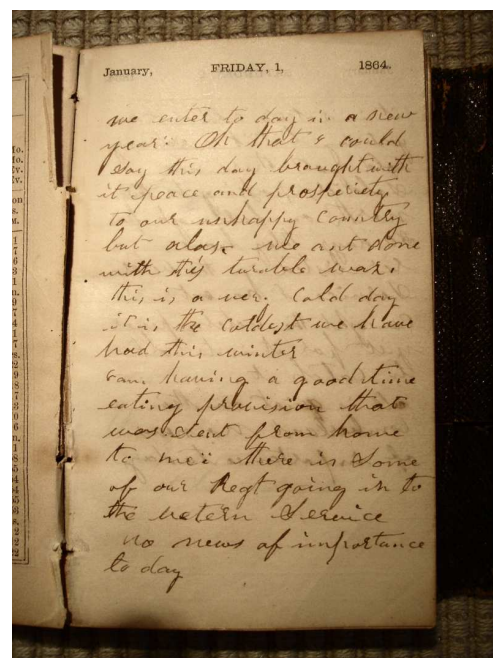 January, FRIDAY, 1, 1864.
we enter to day in a new
year. Oh that I could
say this day brought with
it peace and prosperiety
to our unhappy Country
but alass we ant done
with this turable war.
this is a very Cold day
it is the Coldest we have
had this winter
I am having a good time
eating provision that
was sent from home
to me there is Some
of our Regt going in to
the vetern Service
no news of importance
to day
Mo.
Mo.
Ev.
Ev.
on
s.
M.